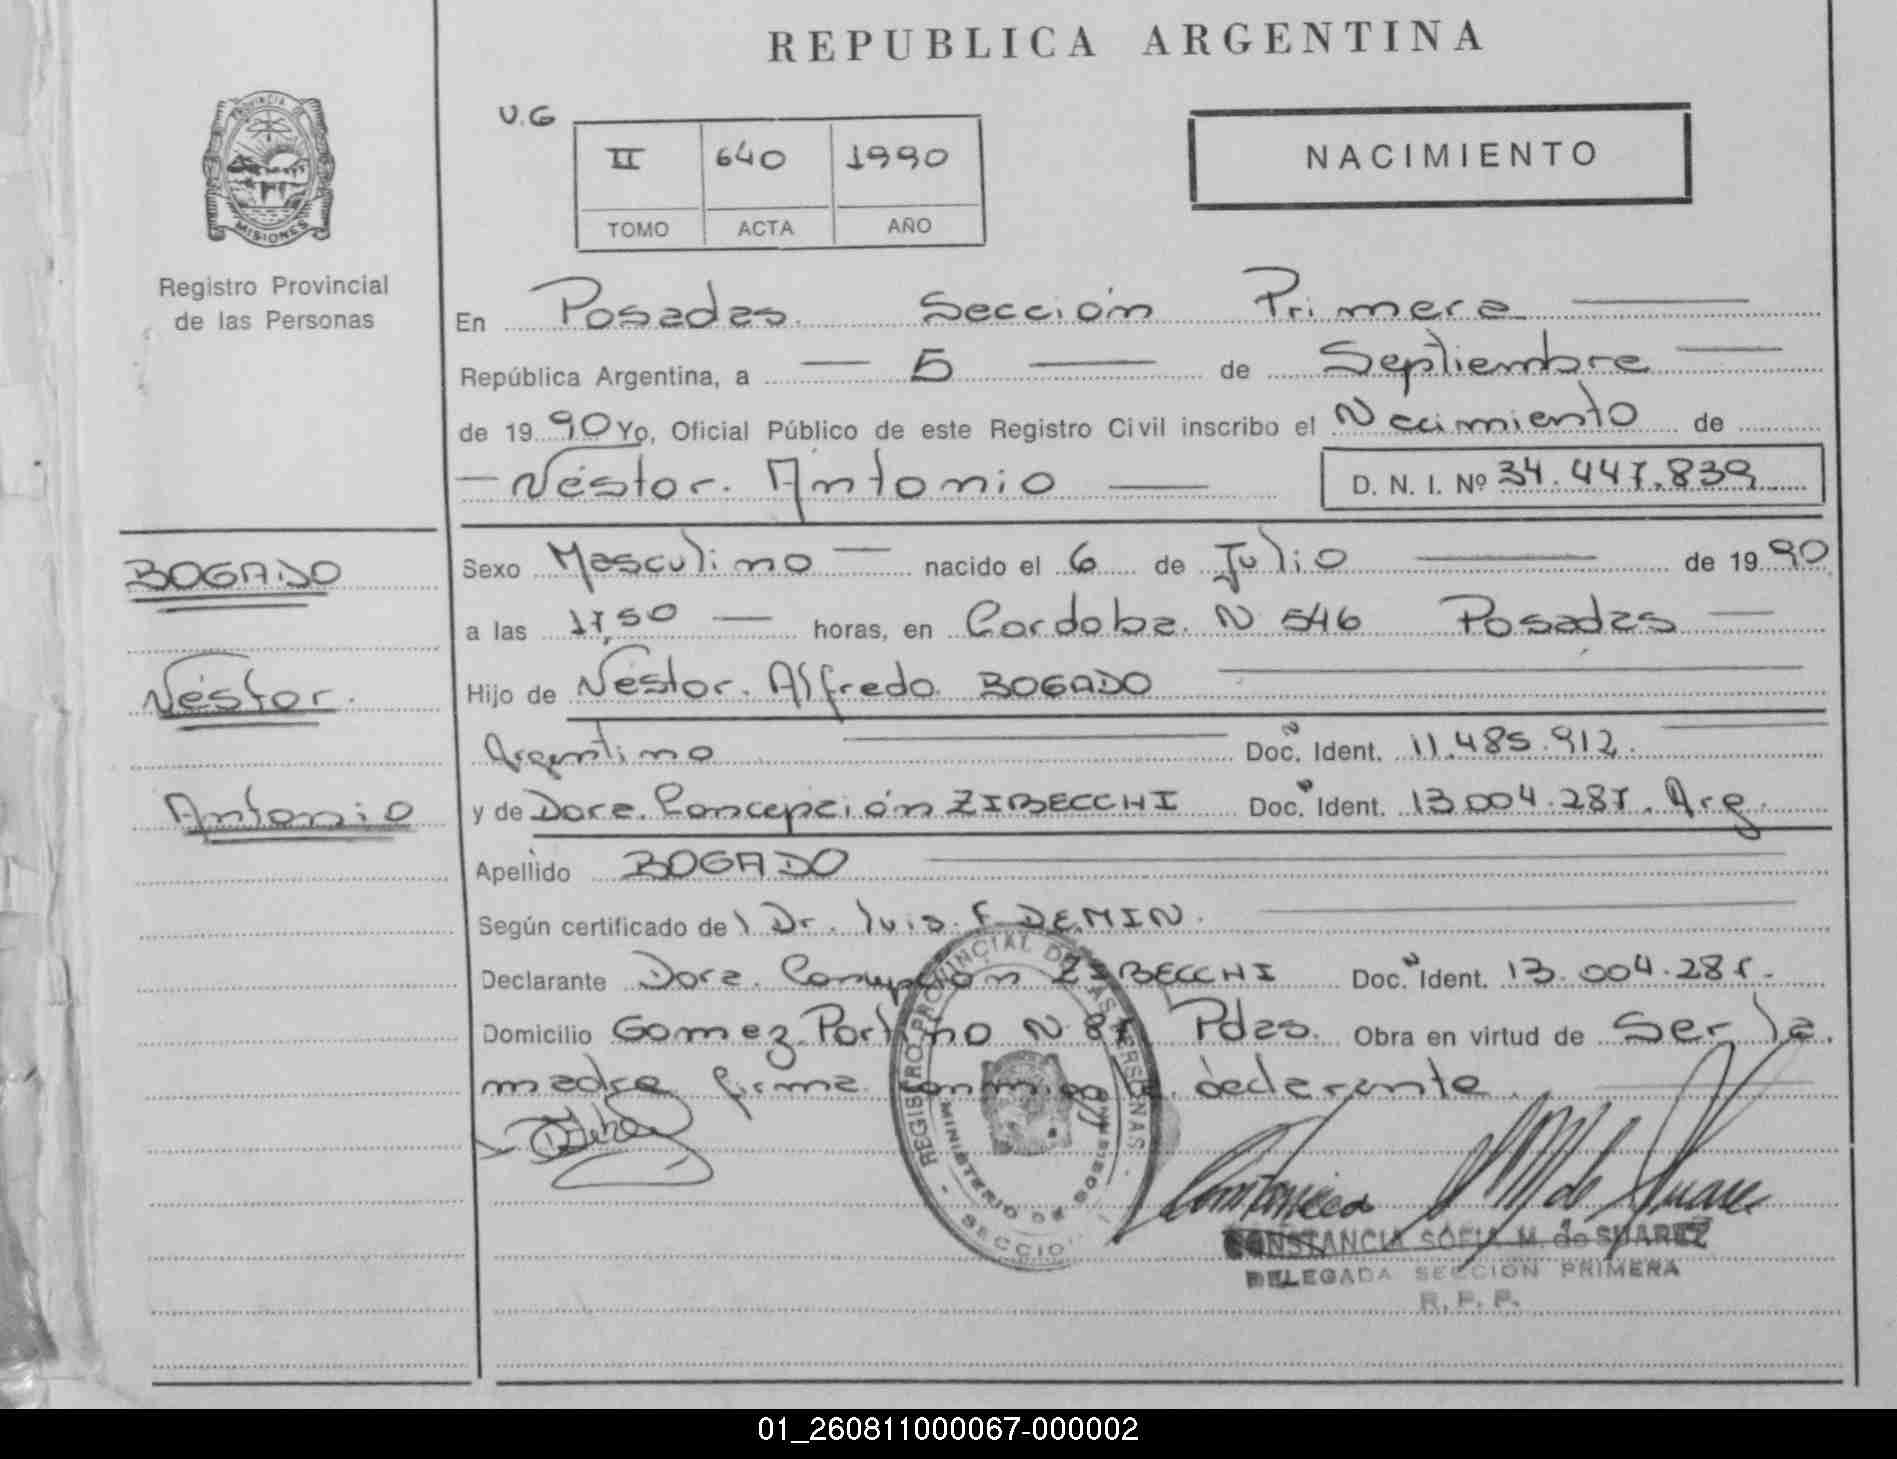 REPUBLICA ARGENTINA
PROVINCIA DE
MISIONES
Registro Provincial
de las Personas
V.G
II 640 1990
TOMO ACTA AÑO
NACIMIENTO
En Posadas. Sección Primera
República Argentina, a 5 de Septiembre
de 1990 Yo, Oficial Público de este Registro Civil inscribo el Nacimiento de
Néstor. Antonio D. N. I. Nº 34.447.839
BOGADO
Néstor.
Antonio
Sexo Masculino nacido el 6 de Julio de 1990
a las 17,50 horas, en Cordoba. N 546 Posadas
Hijo de Néstor. Alfredo BOGADO
Argentino Doc. Ident. 11.485.912.
y de Dora. Concepción ZIBECCHI Doc. Ident. 13.004.287. Arg.
Apellido BOGADO
Según certificado de l Dr. luis. F DEMIN.
Declarante Dora. Concepción ZIBECCHI Doc. Ident. 13.004.287.
Domicilio Gomez. Portino N 87 Pdas. Obra en virtud de Ser la.
madre firma. conmigo la declarante.
REGISTRO PROVINCIAL DE LAS PERSONAS
MINISTERIO DE GOB. MISIONES
SECCION
CONSTANCIA SOFIA M. de SUAREZ
DELEGADA SECCION PRIMERA
R. P. P.
01_260811000067-000002